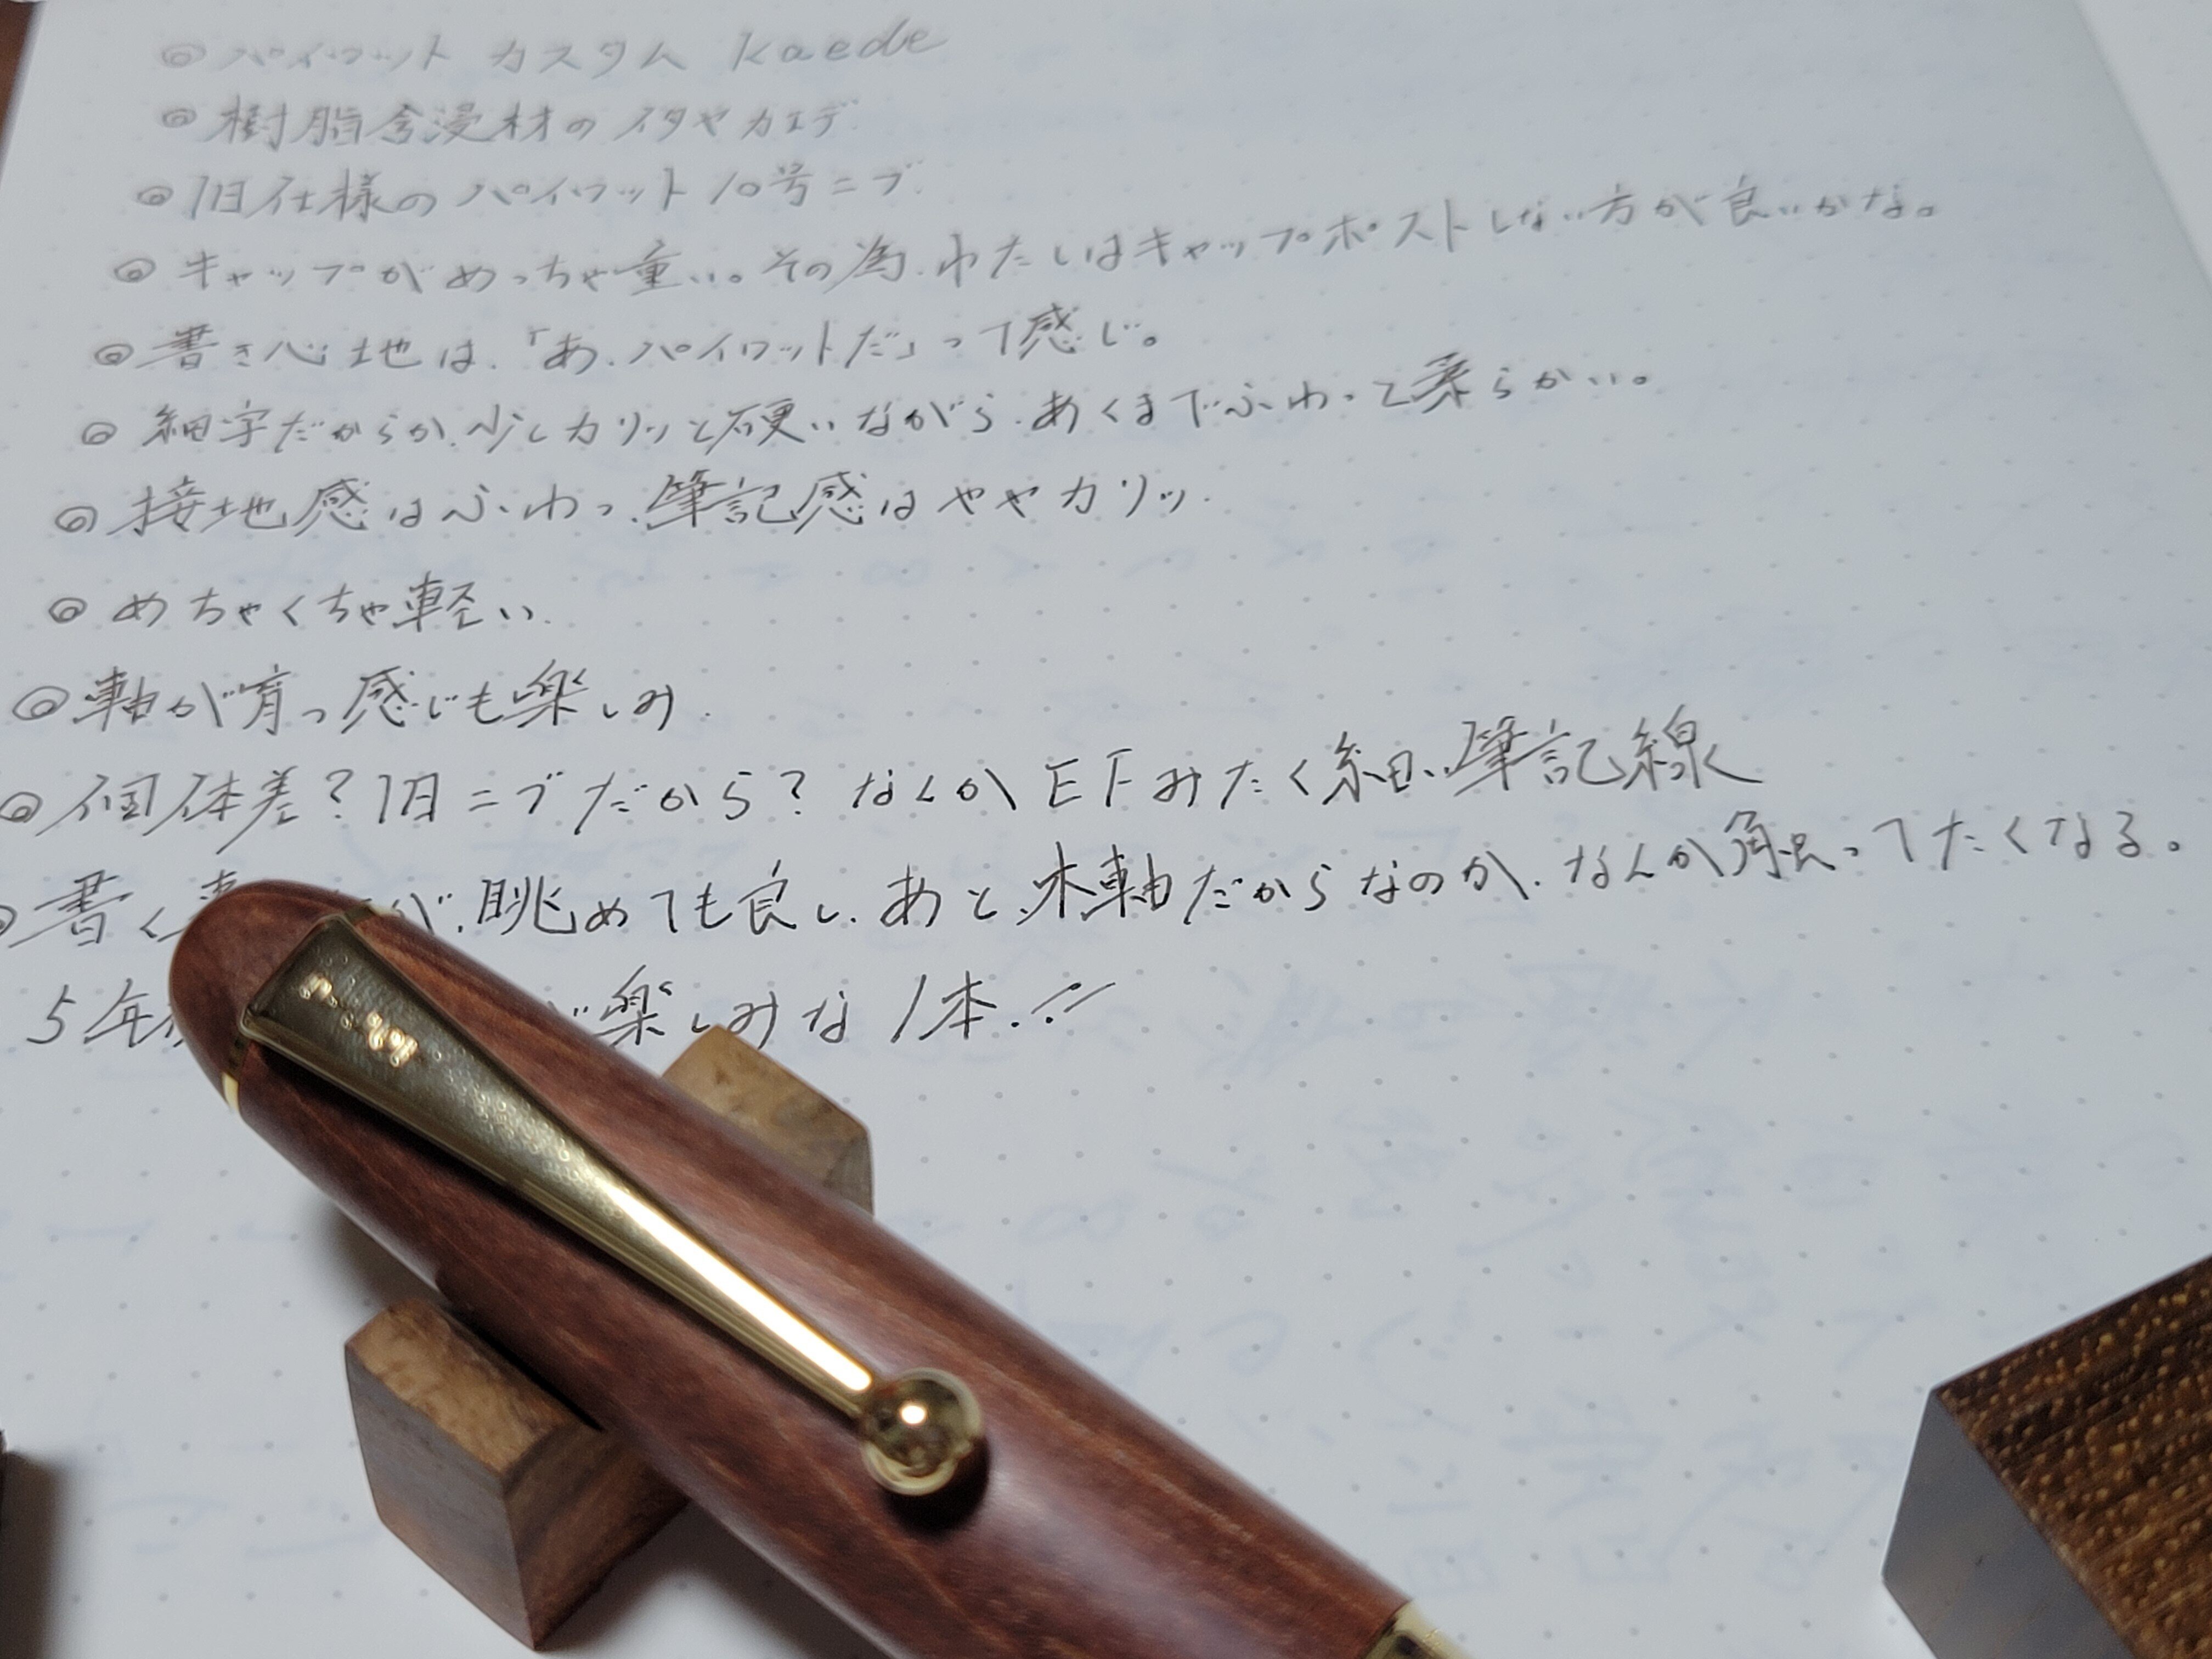 ◎ パイロット カスタム kaede
◎ 樹脂含浸材の イタヤカエデ
◎ 旧仕様の パイロット 10号ニブ.
◎ キャップがめっちゃ重い。その為、わたしはキャップポストしない方が良いかな。
◎ 書き心地は、「あ、パイロットだ」って感じ。
◎ 細字だからか、少しカリッと硬いながら、あくまでふわっと柔らかい。
◎ 接地感はふわっ、筆記感はややカリッ.
◎ めちゃくちゃ軽い.
◎ 軸が育つ感じも楽しみ.
◎ 個体差?旧ニブだから? なんか EFみたく細い筆記線
◎ 書く が、眺めても良し、あと、木軸だからなのか、なんか触ってたくなる。
5年 が楽しみな1本.